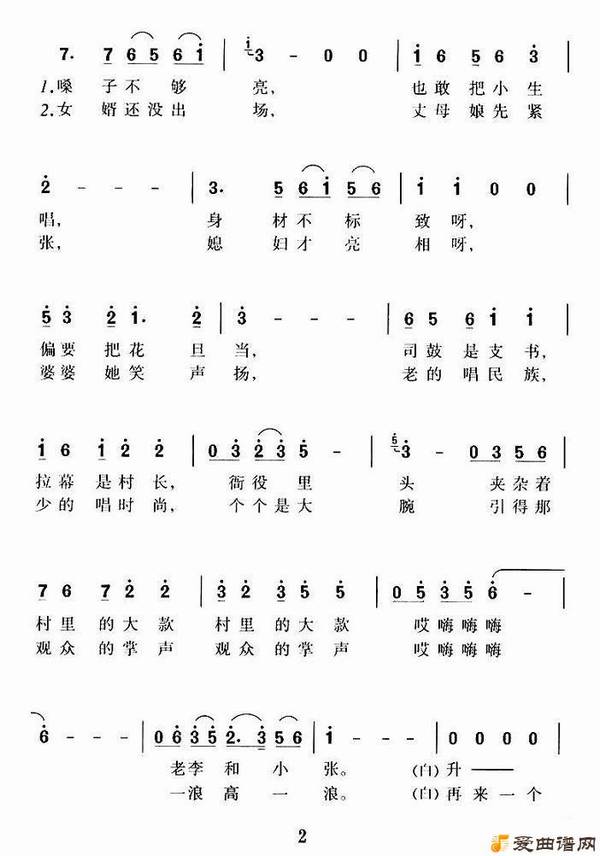 7. 7 6 5 6 1 | 3 - 0 0 | 1 6 5 6 3
1.嗓子不够亮, 也敢把小生
2.女婿还没出场, 丈母娘先紧
2 - - - | 3. 5 6 1 5 6 | 1 1 0 0
唱, 身材不标致呀,
张, 媳妇才亮相呀,
5 3 2 1. | 5 2 | 3 - - - | 6 5 6 1 1
偏要把花旦当, 司鼓是支书,
婆婆她笑声扬, 老的唱民族,
1 6 1 2 2 | 0 3 2 3 5 - - | 5 3 - 0 3 5 6
拉幕是村长, 衙役里头夹杂着
少的唱时尚, 个个是大腕引得那
7 6 7 2 2 | 3 2 3 5 5 | 0 5 3 5 6 - - -
村里的大款 村里的大款 哎嗨嗨嗨
观众的掌声 观众的掌声 哎嗨嗨嗨
6 - - - | 0 6 3 5 2. 3 5 6 | 1 - - - | 0 0 0 0
老李和小张。 (白)升——
一浪高一浪。 (白)再来一个
2
爱曲谱网